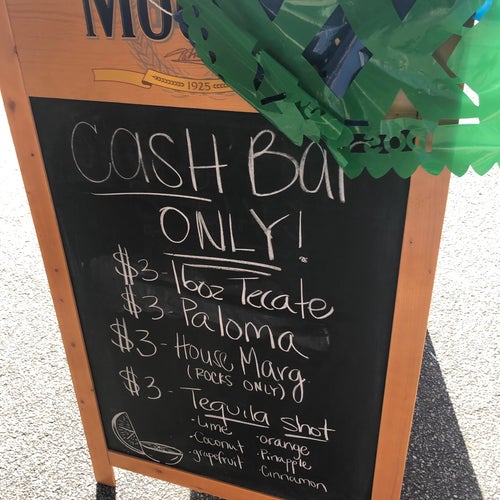 1925
CASH Bar
ONLY!
$3 - 16oz Tecate
$3 - Paloma
$3 - House Marg
(ROCKS ONLY)
$3 - Tequila Shot
- Lime - orange
- Coconut - Pineapple
- grapefruit - Cinnamon